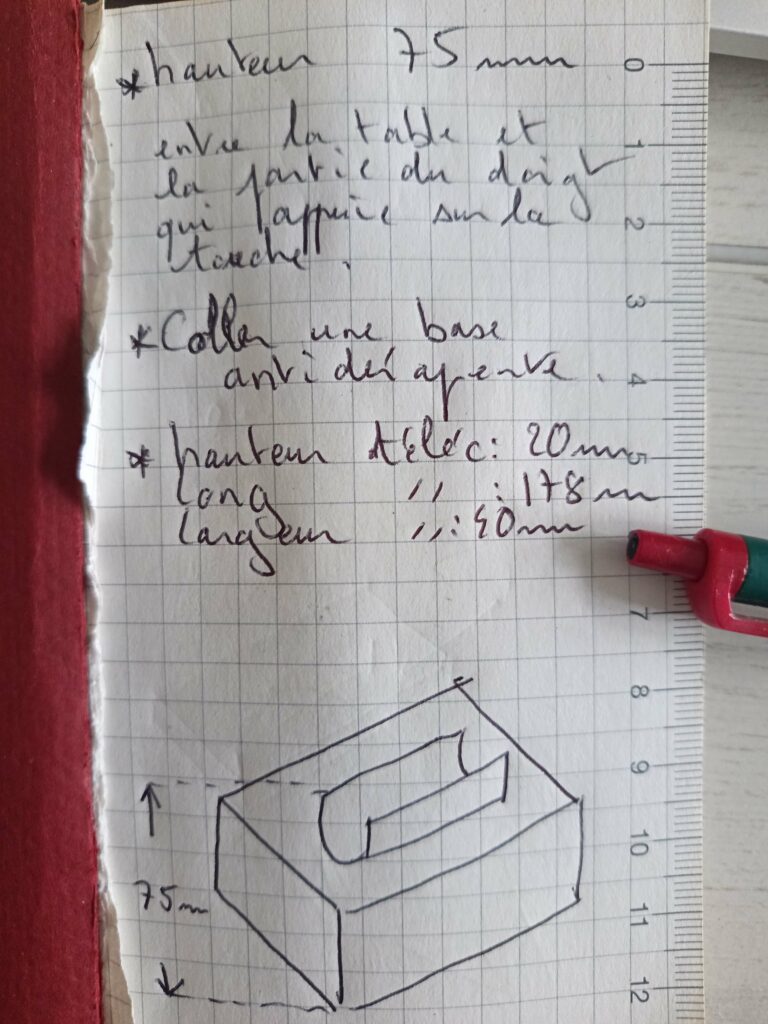 * hauteur 75 mm
entre la table et
la partie du doigt
qui appuie sur la
touche.
* Coller une base
antidérapente.
* hauteur téléc : 20 mm
long " : 178 mm
largeur " : 40 mm
75 mm
0
1
2
3
4
5
7
8
9
10
11
12